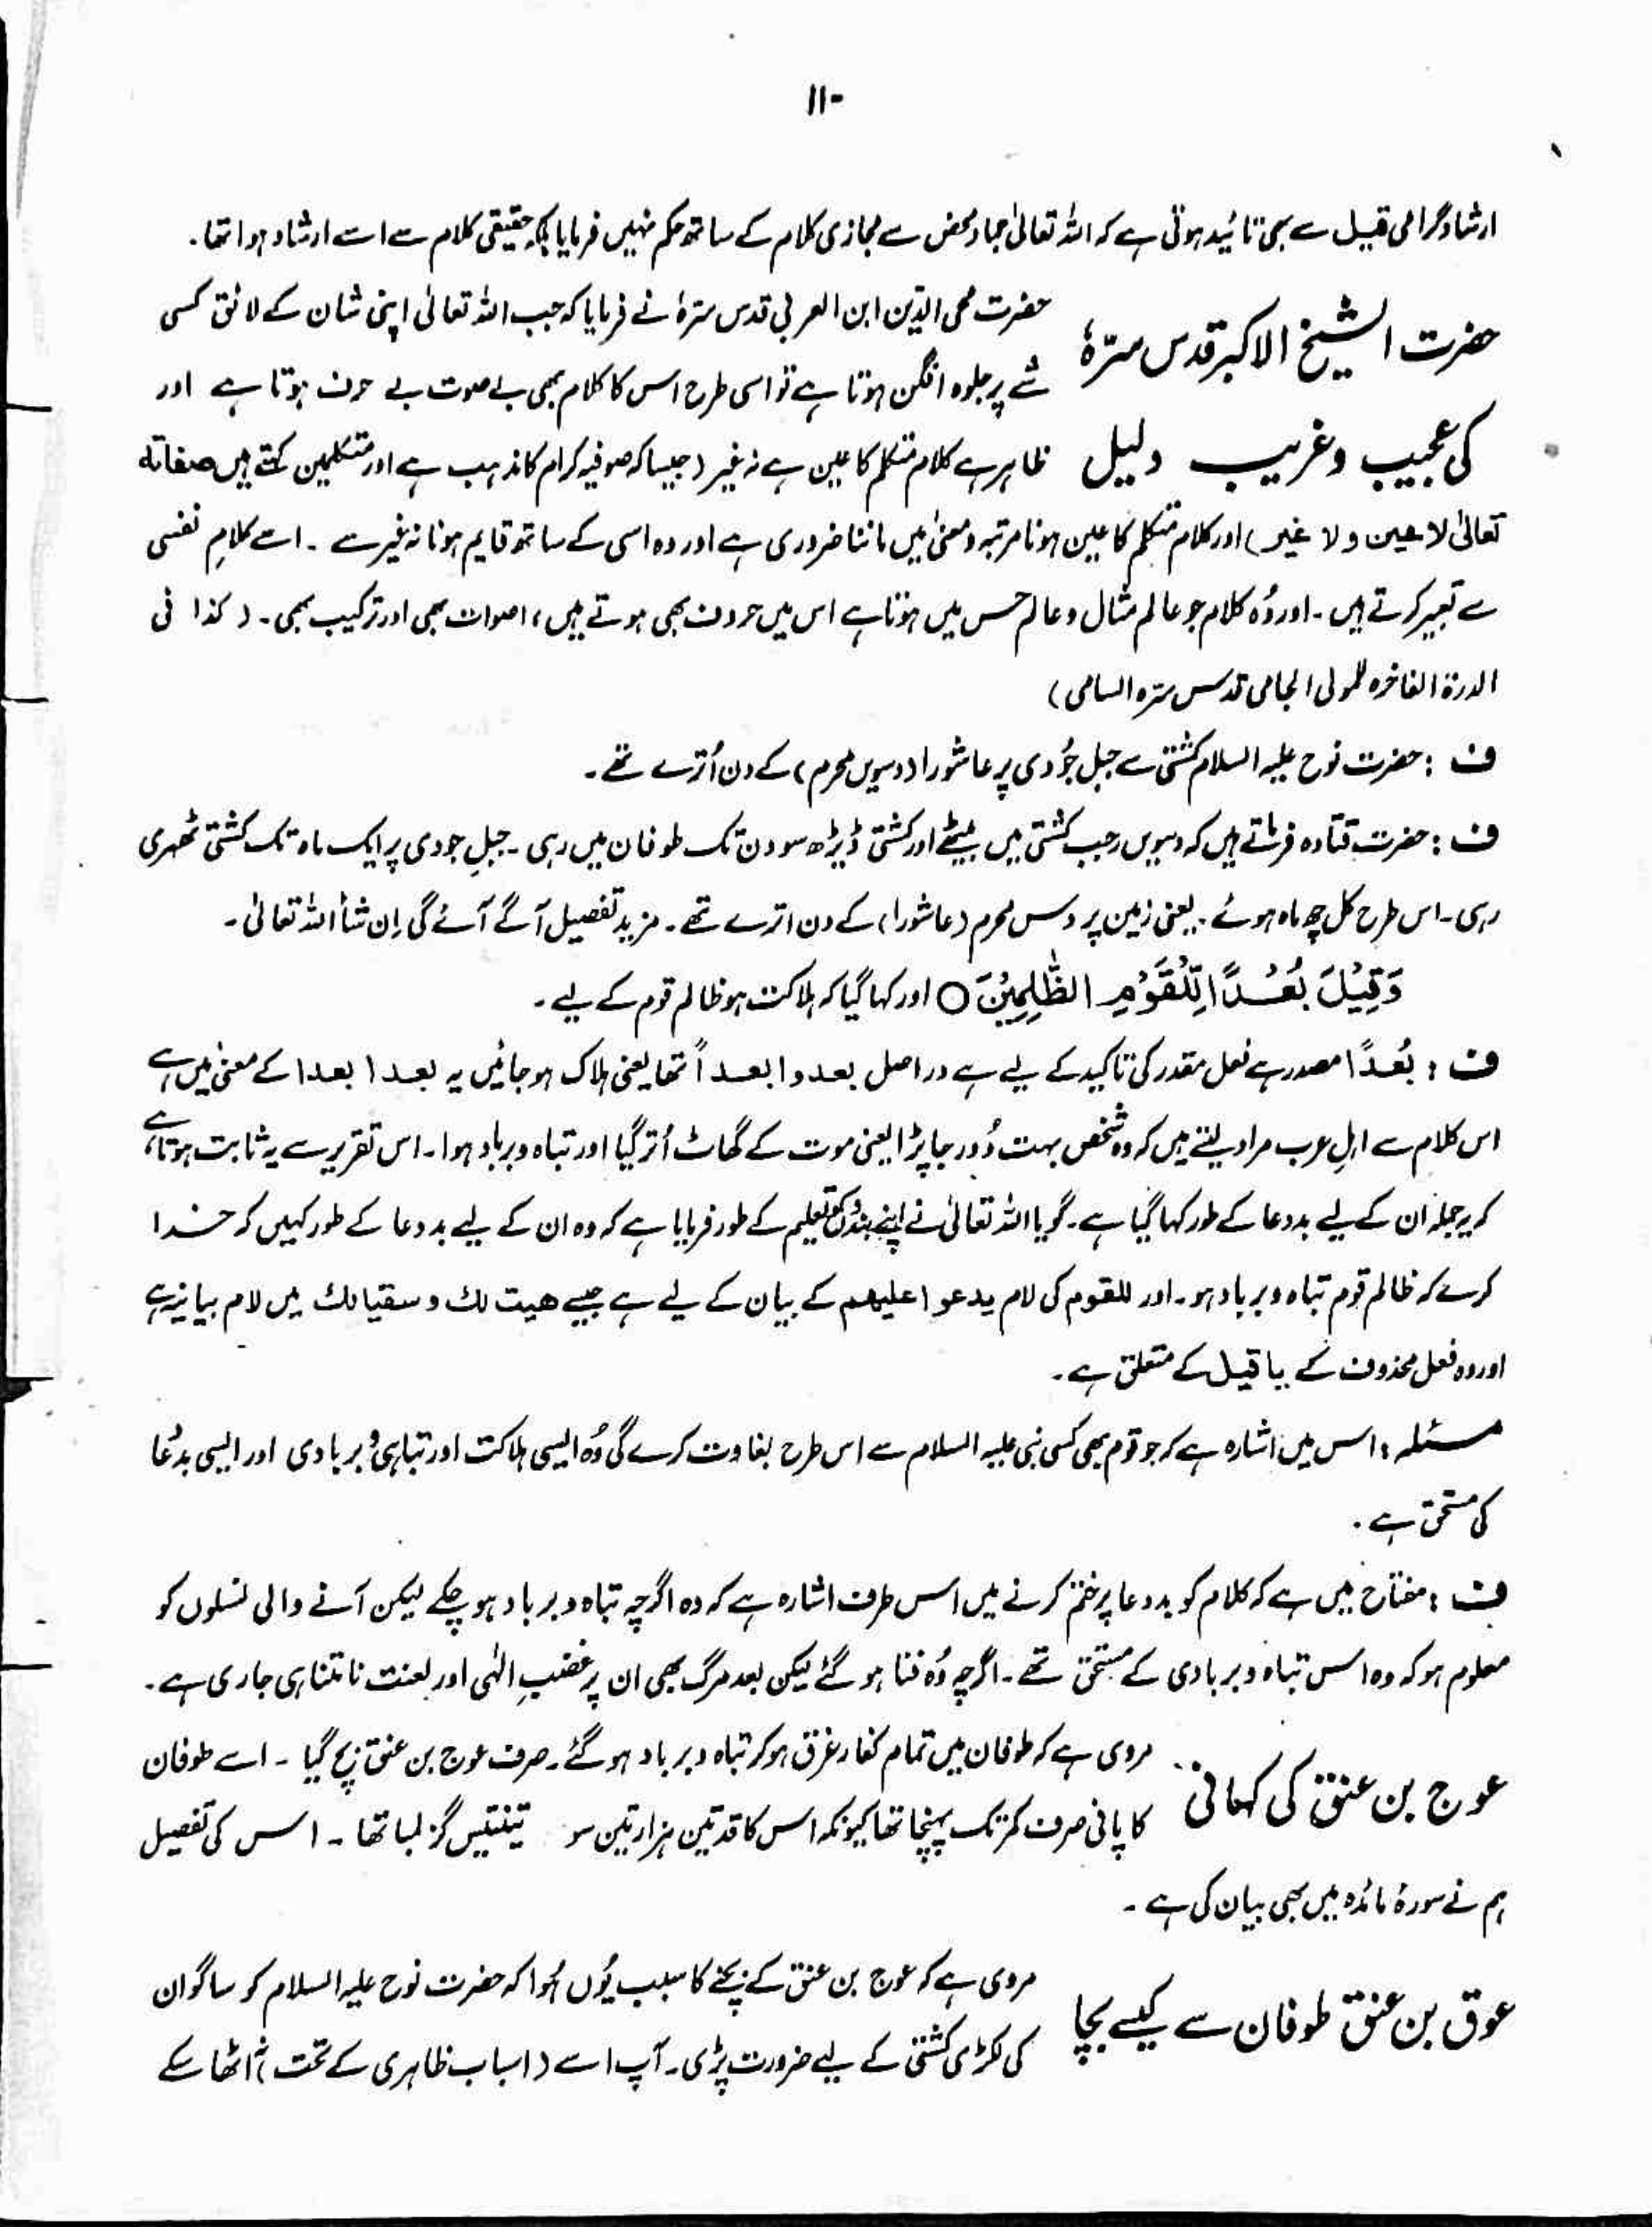 ۱۱۰
ارشادِ گرامی قبیل سے بھی تائید ہوتی ہے کہ اللہ تعالیٰ جمادِ محض سے مجازی کلام کے ساتھ حکم نہیں فرمایا بلکہ حقیقی کلام سے اسے ارشاد ہوا تھا۔
حضرت الشیخ الاکبر قدس سرّہٗ
کی عجیب و غریب دلیل
حضرت محی الدین ابن العربی قدس سرّہٗ نے فرمایا کہ جب اللہ تعالیٰ اپنی شان کے لائق کسی
شے پر جلوہ افگن ہوتا ہے تو اسی طرح اس کا کلام بھی بے صوت بے حرف ہوتا ہے اور
ظاہر ہے کلام متکلم کا عین ہے نہ غیر (جیسا کہ صوفیہ کرام کا مذہب ہے اور متکلمین کہتے ہیں صفاتہ
تعالیٰ لا عین ولا غیر) اور کلام متکلم کا عین ہونا مرتبہ و معنیٰ میں ماننا ضروری ہے اور وہ اسی کے ساتھ قایم ہونا نہ غیر سے ۔ اسے کلامِ نفسی
سے تعبیر کرتے ہیں ۔ اور وُہ کلام جو عالم مثال و عالم حس میں ہوتا ہے اس میں حروف بھی ہوتے ہیں ، اصوات بھی اور ترکیب بھی ۔ (کذا فی
الدرۃ الفاخرہ للمولی الجامی قدس سرّہ السامی)
ف : حضرت نوح علیہ السلام کشتی سے جبل جُودی پر عاشورا (دسویں محرم) کے دن اُترے تھے ۔
ف : حضرت قتادہ فرماتے ہیں کہ دسویں رجب کشتی میں بیٹھے اور کشتی ڈیڑھ سو دن تک طوفان میں رہی ۔ جبلِ جودی پر ایک ماہ تک کشتی ٹھہری
رہی ۔ اس طرح کل چھ ماہ ہوئے ۔ یعنی زمین پر دس محرم (عاشورا) کے دن اترے تھے ۔ مزید تفصیل آگے آئے گی اِن شأ اللہ تعالیٰ ۔
وَقِیْلَ بُعْدًا لِّلْقَوْمِ الظّٰلِمِیْنَ ○ اور کہا گیا کہ ہلاکت ہو ظالم قوم کے لیے ۔
ف : بُعْدًا مصدر ہے فعل مقدر کی تاکید کے لیے ہے در اصل بعدوا بعداً تھا یعنی ہلاک ہو جائیں یہ بعدا بعدا کے معنیٰ میں ہے
اس کلام سے اہلِ عرب مراد لیتے ہیں کہ وہ شخص بہت دُور جا پڑا یعنی موت کے گھاٹ اُتر گیا اور تباہ و برباد ہوا ۔ اس تقریر سے یہ ثابت ہوتا ہے
کہ یہ جملہ ان کے لیے بددعا کے طور کہا گیا ہے ۔ گویا اللہ تعالیٰ نے اپنے بندوں کو تعلیم کے طور فرمایا ہے کہ وہ ان کے لیے بددعا کے طور کہیں کہ خدا
کرے کہ ظالم قوم تباہ و برباد ہو ۔ اور للقوم کی لام یدعوا علیھم کے بیان کے لیے ہے جیسے ھیت لك و سقیا لك میں لام بیانیہ ہے
اور وہ فعل محذوف کے یا قیل کے متعلق ہے ۔
مسئلہ : اس میں اشارہ ہے کہ جو قوم بھی کسی نبی علیہ السلام سے اس طرح بغاوت کرے گی وُہ ایسی ہلاکت اور تباہی و بربادی اور ایسی بددُعا
کی مستحق ہے ۔
ف : مفتاح میں ہے کہ کلام کو بددعا پر ختم کرنے میں اس طرف اشارہ ہے کہ وہ اگرچہ تباہ و برباد ہو چکے لیکن آنے والی نسلوں کو
معلوم ہو کہ وہ اس تباہ و بربادی کے مستحق تھے ۔ اگرچہ وُہ فنا ہو گئے لیکن بعد مرگ بھی ان پر غضبِ الٰہی اور لعنت نامتناہی جاری ہے ۔
عوج بن عنق کی کہانی
مروی ہے کہ طوفان میں تمام کفار غرق ہو کر تباہ و برباد ہو گئے ۔ صرف عوج بن عنق بچ گیا ۔ اسے طوفان
کا پانی صرف کمر تک پہنچا تھا کیونکہ اس کا قد تین ہزار تین سو تینتیس گز لمبا تھا ۔ اس کی تفصیل
ہم نے سورۂ مائدہ میں بھی بیان کی ہے ۔
عوق بن عنق طوفان سے کیسے بچا
مروی ہے کہ عوج بن عنق کے بچنے کا سبب یُوں ہُوا کہ حضرت نوح علیہ السلام کو ساگوان
کی لکڑی کشتی کے لیے ضرورت پڑی ۔ آپ اسے (اسباب ظاہری کے تحت) نہ اٹھا سکے